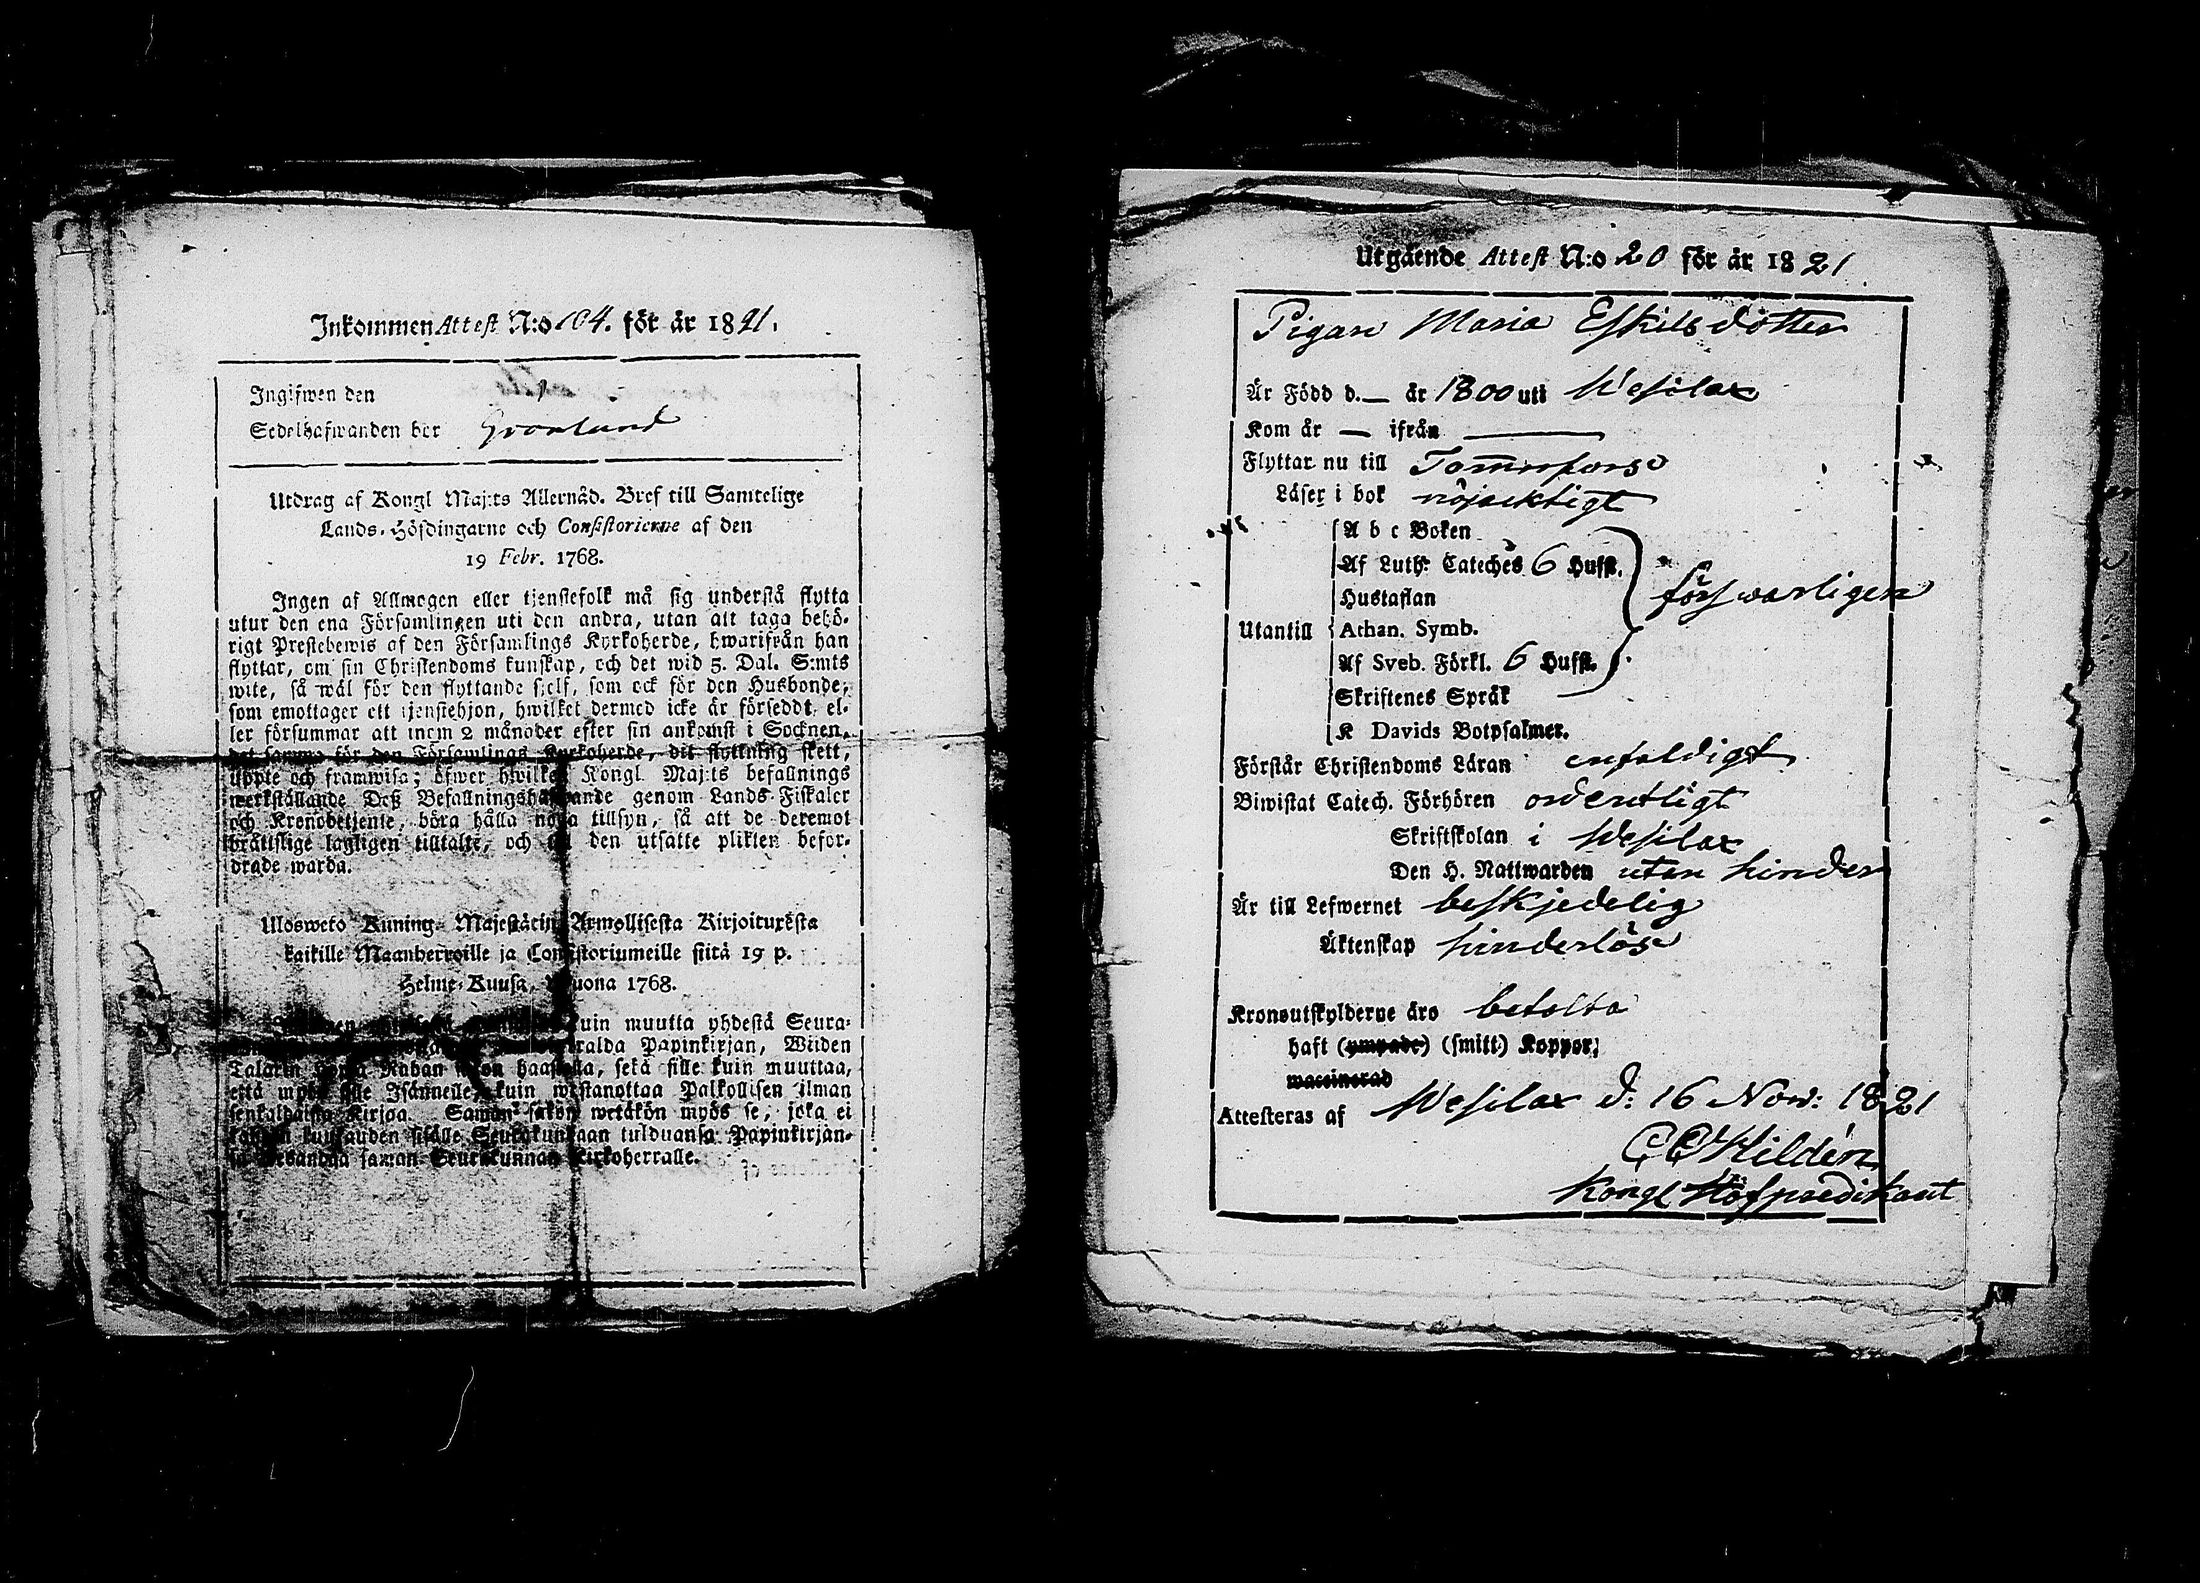 Inkommen Attest N:o 104. för år 1821.
Ingifwen den
Sedelhafwanden bor Grönlund
Utdrag af Kongl Maj:ts Allernåd. Bref till Samtelige
Lands-Höfdingarne och Consistorierne af den
19 Febr. 1768.
Ingen af Allmogen eller tjenstefolk må sig understå flytta
utur den ena Församlingen uti den andra, utan att taga behö-
rigt Prestebewis af den Församlings Kyrkoherde, hwarifrån han
flyttar, om sin Christendoms kunskap, och det wid 5. Dal. S:mts
wite, så wäl för den flyttande sjelf, som ock för den Husbonde,
som emottager ett tjenstehjon, hwilket dermed icke är försedt, el-
ler försummar att inom 2 månader efter sin ankomst i Socknen,
det samma för den Församlings Kyrkoherde, dit flyttning skett,
uppte och framwisa; öfwer hwilket Kongl Maj:ts befallnings
werkställande Deß Befallningshafwande genom Lands-Fiskaler
och Kronobetjente, böra hålla noga tillsyn, så att de deremot
brätslige lagligen tilltalte, och till den utsatte plikten befor-
drade warda.
Ulosweto Kuning- Majestätin Armollisesta Kirjoituxesta
kaikille Maanherroille ja Consistoriumeille siitä 19 p.
Helme-Kuusa, Wuona 1768.
kuin muutta yhdestä Seura-
Papinkirjan, Wiiden
Talarin Rahan haastolla, sekä sille kuin muuttaa,
että myös sille Isännelle, kuin wastanottaa Palkollisen ilman
senkaldaista Kirjaa. Saman sakon wetäkön myös se, joka ei
kahden kuukauden sisälle Seurakunnaan tulduansa Papinkirjan-
sa saman Seurakunnan Kirkoherralle.
Utgående Attest N:o 20 för år 1821
Pigan Maria Eskilsdotter
Är Född d. — år 1800 uti Wesilax
Kom år — ifrån —
Flyttar nu till Tammerfors
Läser i bok nöjacktigt
A b c Boken
Af Luth: Cateches 6 Hufst.
Hustaflan
förswarligen
Utantill Athan. Symb.
Af Sveb. Förkl. 6 Hufst.
Skriftenes Språk
K Davids Botpsalmer.
Förstår Christendoms Läran enfaldigt
Biwistat Catech. Förhören ordentligt
Skriftskolan i Wesilax
Den H. Nattwarden utan hinder
Är till Lefwernet beskjedelig
Äktenskap hinderlös
Kronoutskylderne äro betalta
haft (ympade) (smitt) Koppor;
waccinerad
Attesteras af Wesilax d: 16 Nov: 1821
C C Hildén
Kongl Hofpredikant